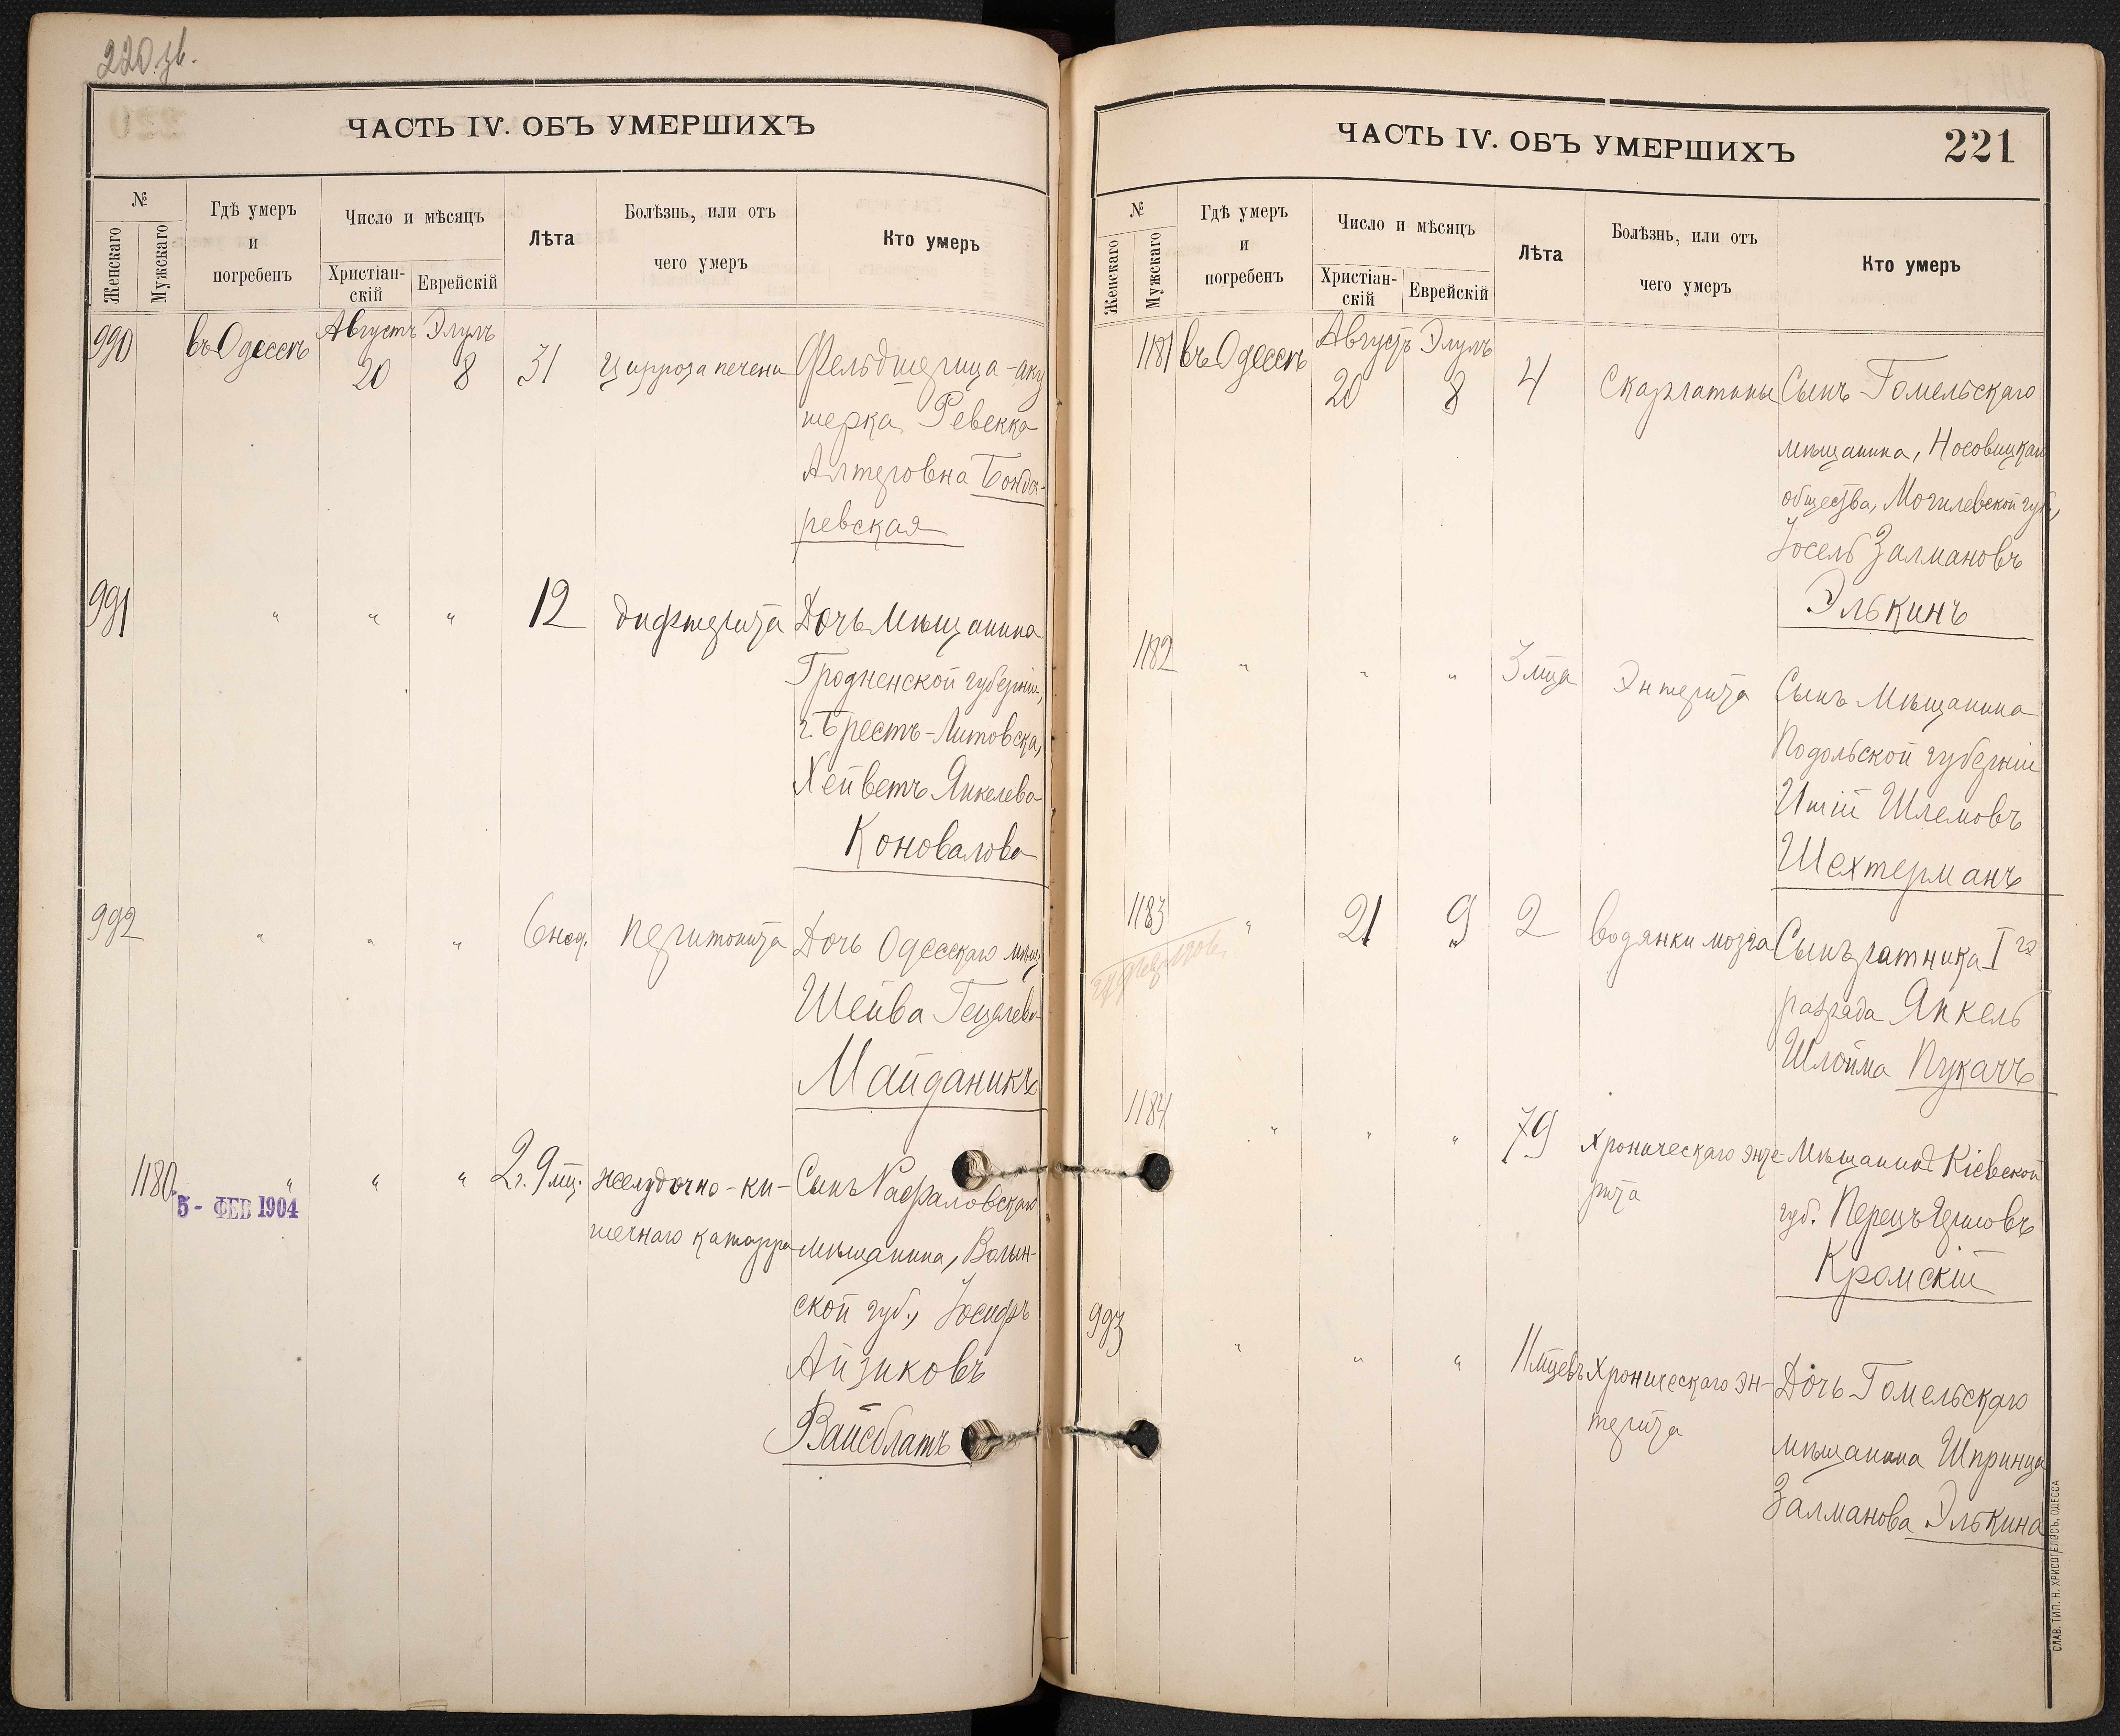 220 зв.
ЧАСТЬ IV. ОБЪ УМЕРШИХЪ
№
Женскаго
Мужскаго
Гдѣ умеръ
и
погребенъ
Число и мѣсяцъ
Христіан-
скій
Еврейскій
Лѣта
Болѣзнь, или отъ
чего умеръ
Кто умеръ
990
въ Одессѣ
Августъ
20
Элулъ
8
31
Цирроза печени
Фельдшерица-аку
шерка Ревекка
Алтеровна Бонда-
ревская
991
"
"
"
12
дифтерита
Дочь Мѣщанина
Гродненской губерніи,
г. Брестъ-Литовска,
Хейветъ Янкелева
Коновалова
992
"
"
"
6 нед.
перитонита
Дочь Одесскаго мѣщ.
Шейва Гецелева
Майданикъ
1180
5 - ФЕВ 1904
"
"
"
2 г. 9 мц.
желудочно-ки-
шечнаго катарра
Сынъ
мѣщанина, Волын-
ской губ., Іосифъ
Айзиковъ
Вайсблатъ
ЧАСТЬ IV. ОБЪ УМЕРШИХЪ
221
№
Женскаго
Мужскаго
Гдѣ умеръ
и
погребенъ
Число и мѣсяцъ
Христіан-
скій
Еврейскій
Лѣта
Болѣзнь, или отъ
чего умеръ
Кто умеръ
1181
въ Одессѣ
Августъ
20
Элулъ
8
4
Скарлатины
Сынъ Гомельскаго
мѣщанина, Носовицкаго
общества, Могилевской губ.,
Іосель Залмановъ
Элькинъ
1182
"
"
"
3 мца
Энтерита
Сынъ Мѣщанина
Подольской губерніи
Шлемовъ
Шехтерманъ
1183
"
21
9
2
водянки мозга
Сынъ ратника I го
разряда Янкель
Шлойма Пукачъ
1184
"
"
"
79
Хроническаго энте-
рита
Мѣщанинъ Кіевской
губ. Перецъ
Кромскій
993
"
"
"
11 мцевъ
Хроническаго эн-
терита
Дочь Гомельскаго
мѣщанина Шпринца
Залманова Элькина
СЛАВ. ТИП. Н. ХРИСОГЕЛОСЪ, ОДЕССА